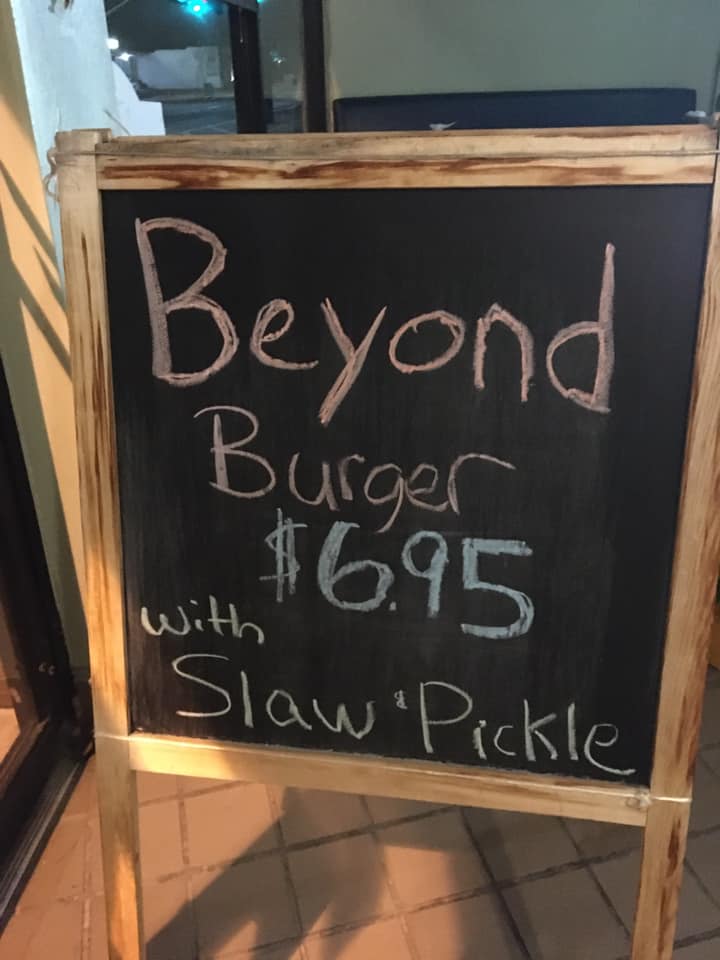 Beyond
Burger
$6.95
with
Slaw & Pickle